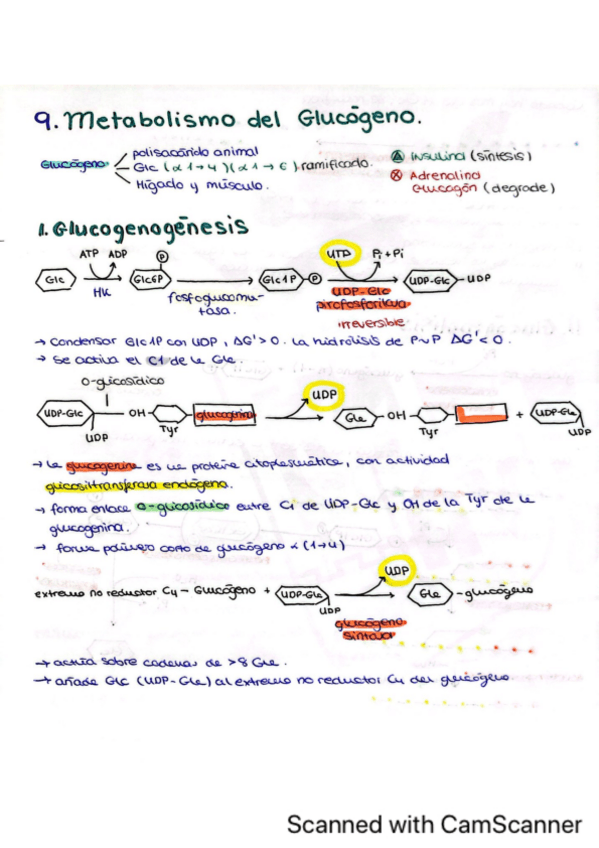 9. Metabolismo del Glucógeno.
Glucógeno
polisacárido animal
Glc (α1→4)(α1→6) ramificado.
Hígado y músculo.
Insulina (síntesis)
Adrenalina
Glucagón (degrade)
1. Glucogenogénesis
ATP ADP P UTP Pi + Pi
Glc Glc6P Glc1P P UDP-Glc - UDP
HK fosfoglucomu-
tasa.
UDP-Glc
pirofosforilasa
irreversible
→ Condensar Glc1P con UDP, ΔG'>0. La hidrólisis de P~P ΔG'<0.
→ Se activa el C1 de la Glc.
O-glicosídico
UDP
UDP-Glc - OH - glucogenina Glc - OH + UDP-Glc
UDP Tyr Tyr UDP
→ La glucogenina es una proteína citoplasmática, con actividad
glicosiltransferasa endógena.
→ forma enlace O-glicosídico entre C1 de UDP-Glc y OH de la Tyr de la
glucogenina.
→ forma polímero corto de glucógeno α(1→4)
UDP
extremo no reductor C4 - Glucógeno + UDP-Glc Glc - glucógeno
UDP
glucógeno
sintasa
→ actúa sobre cadenas de >8 Glc.
→ añade Glc (UDP-Glc) al extremo no reductor C4 del glucógeno.
Scanned with CamScanner